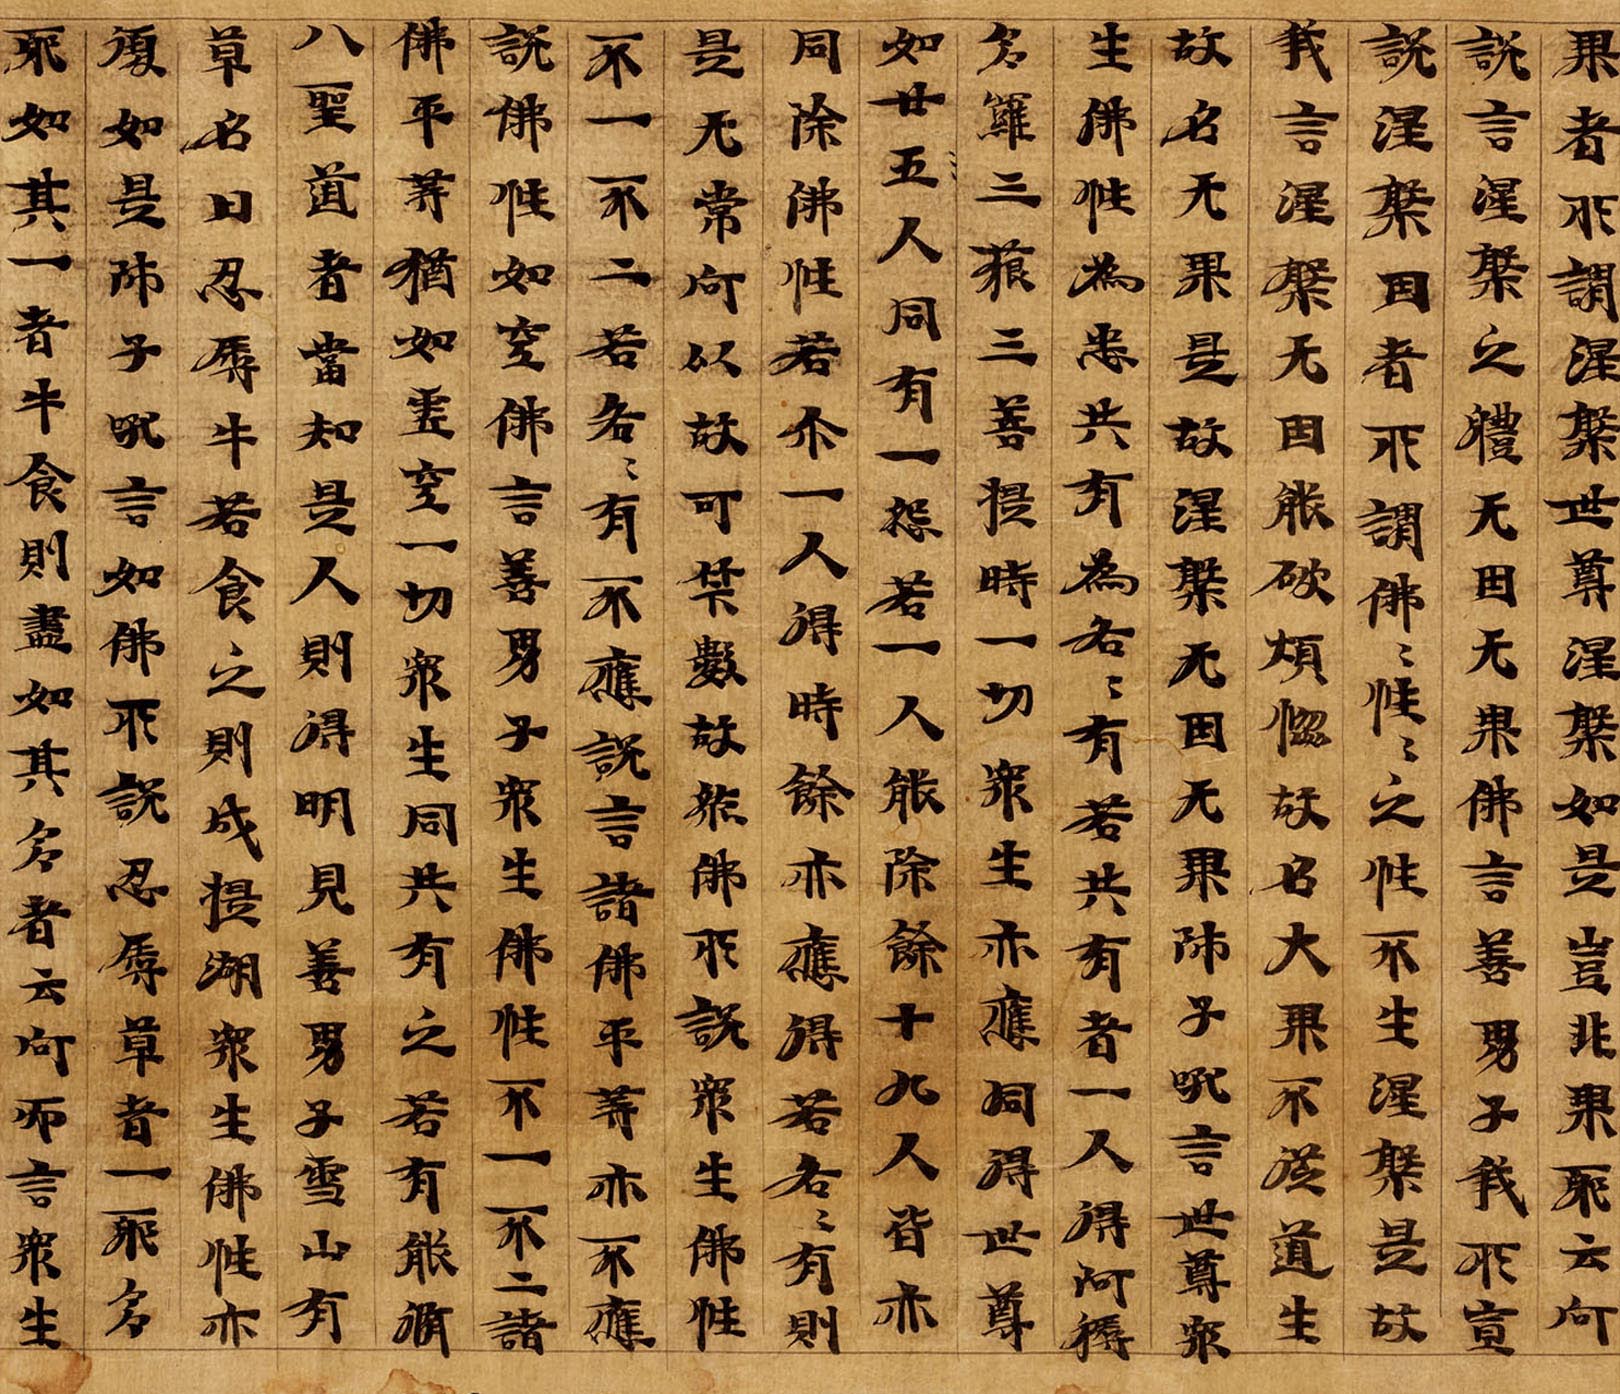 果者所謂涅槃世尊涅槃如是豈非果耶云何
說言涅槃之體无因无果佛言善男子我所宣
說涅槃因者所謂佛〻性〻之性不生涅槃是故
我言涅槃无因能破煩惱故名大果不從道生
故名无果是故涅槃无因无果師子吼言世尊眾
生佛性為悉共有為各〻有若共有者一人得阿耨
多羅三藐三菩提時一切眾生亦應同得世尊
如廿五人同有一怨若一人能除餘十九人皆亦
同除佛性若尒一人得時餘亦應得若各〻有則
是无常何以故可筭數故然佛所說眾生佛性
不一不二若各〻有不應說言諸佛平等亦不應
說佛性如空佛言善男子眾生佛性不一不二諸
佛平等猶如虛空一切眾生同共有之若有能脩
八聖道者當知是人則得明見善男子雪山有
草名曰忍辱牛若食之則成提湖眾生佛性亦
復如是師子吼言如佛所說忍辱草者一耶多
耶如其一者牛食則盡如其多者云何而言眾生